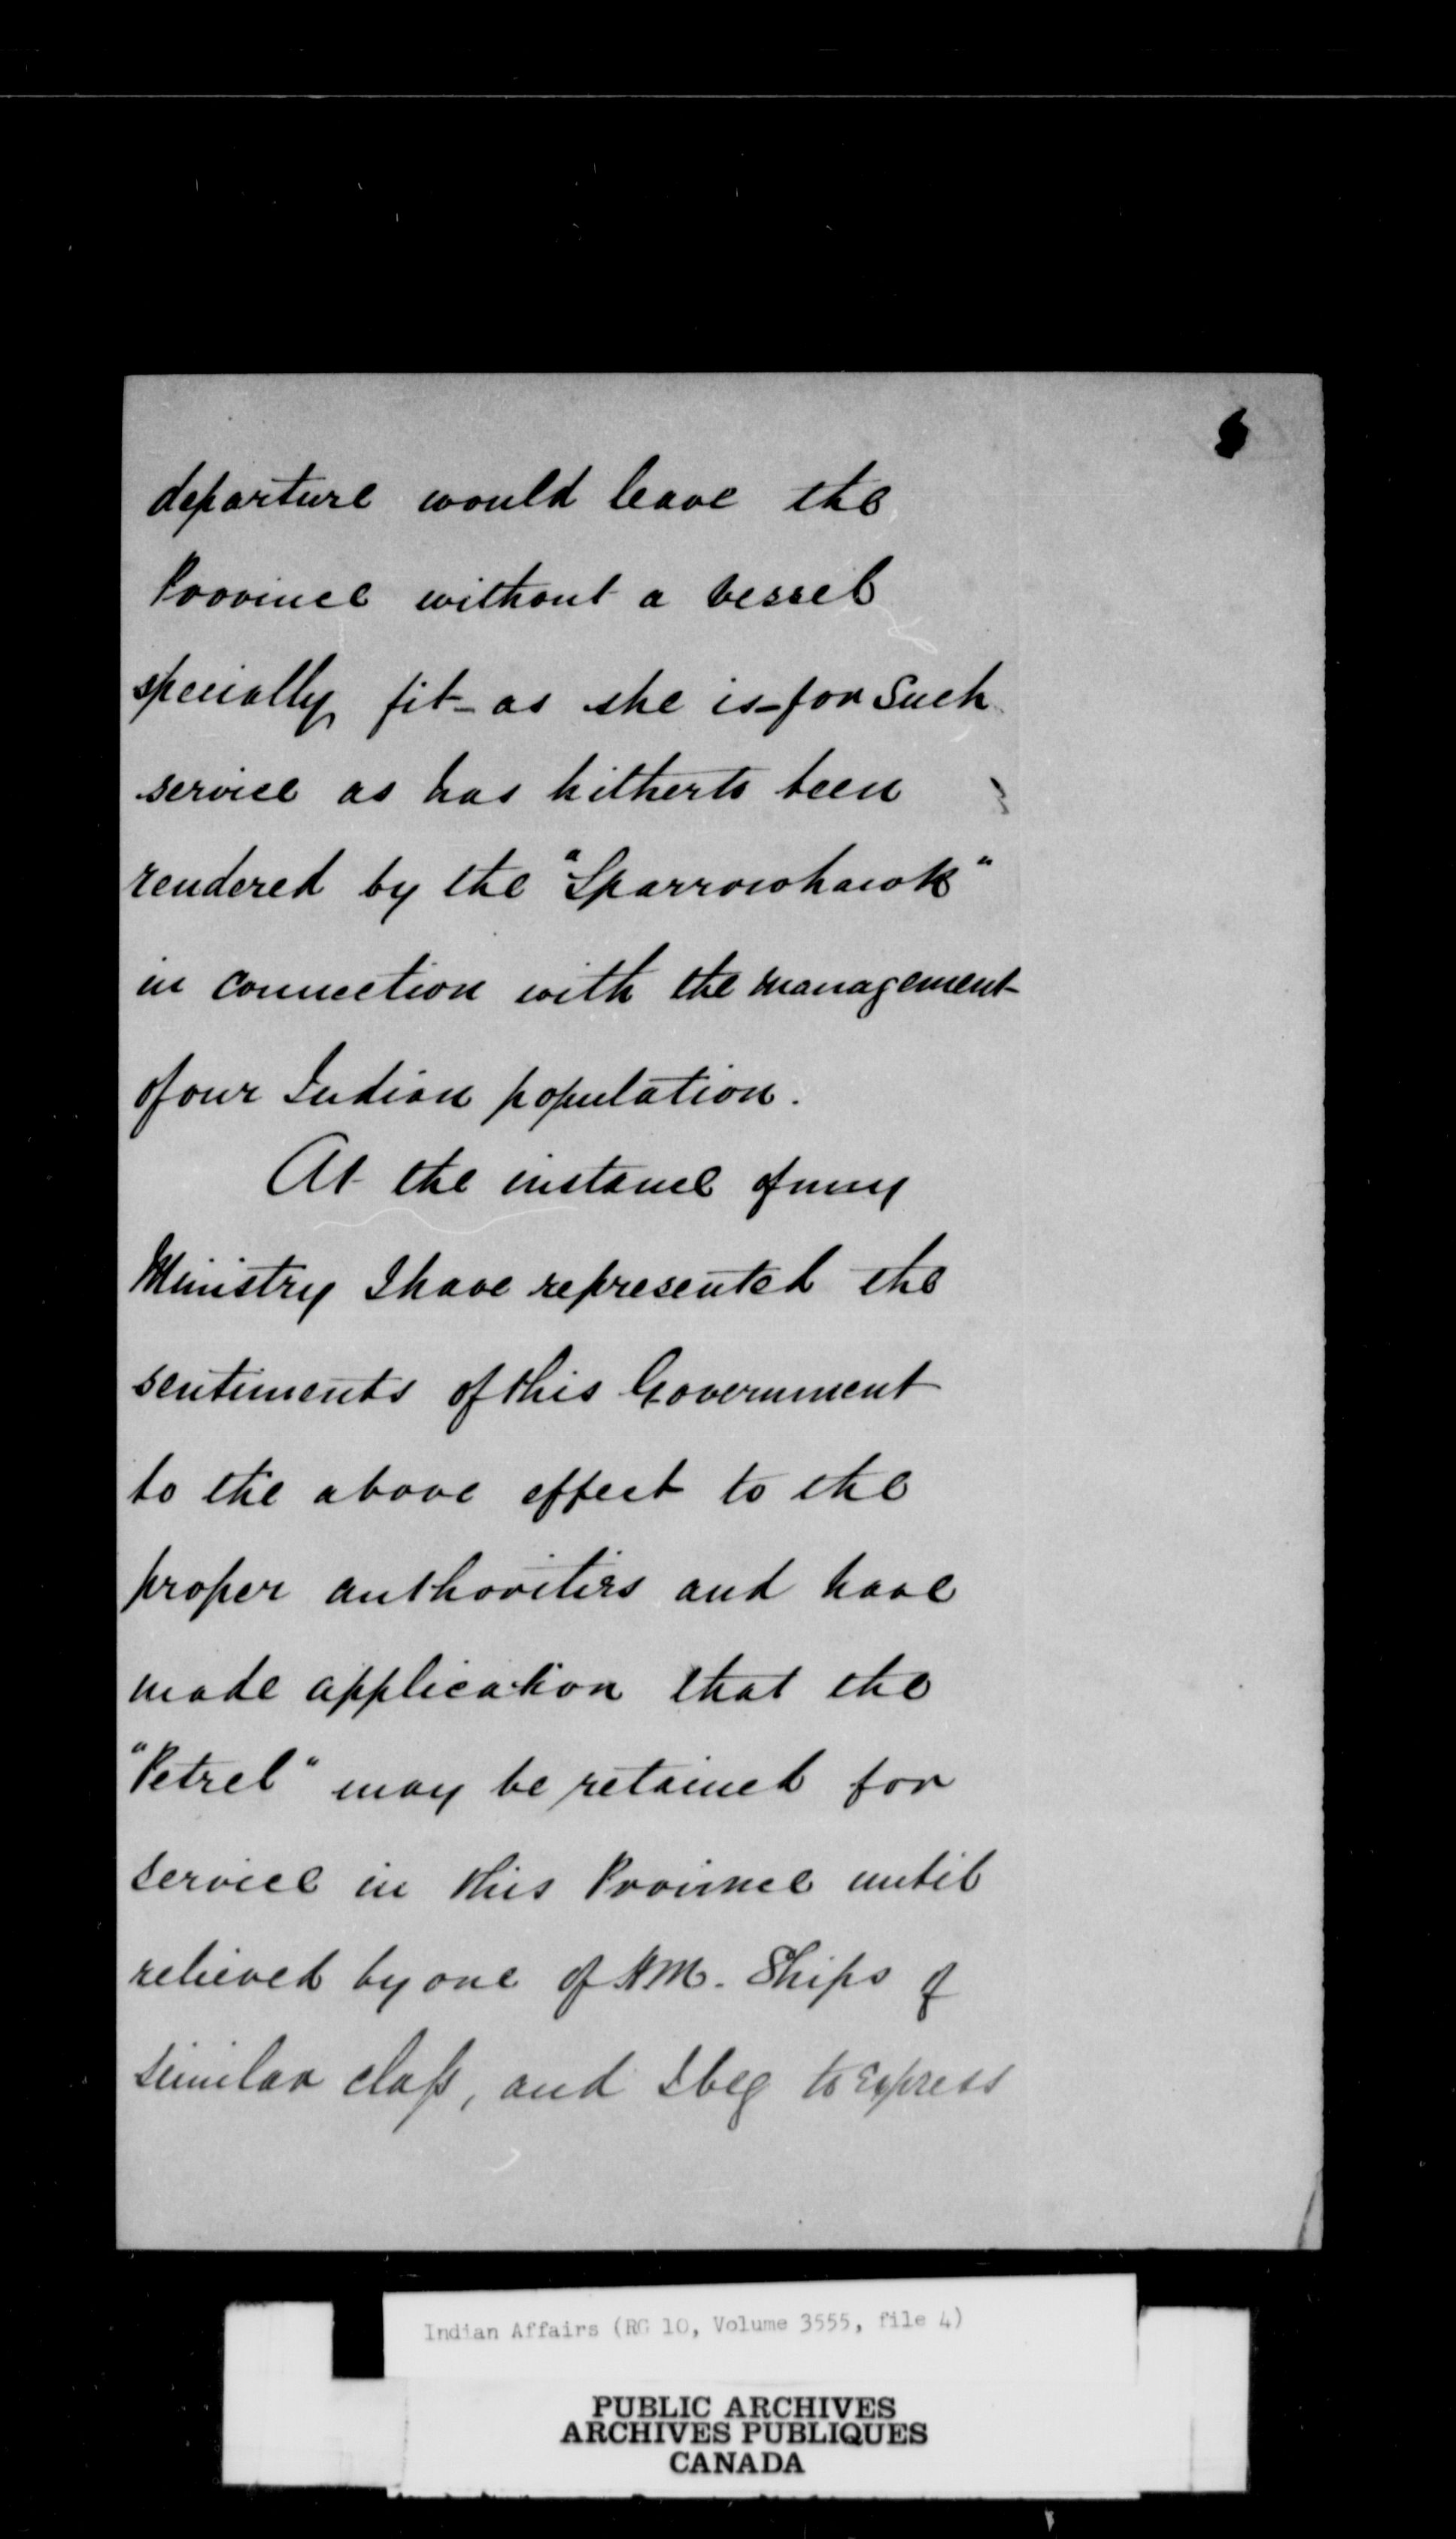 departure would leave the
Province without a vessel
specially fit - as she is - for such
service as has hitherto been
rendered by the "Sparrowhawk"
in connection with the management
of our Indian population.
At the instance of my
Ministry I have represented the
sentiments of this Government
to the above effect to the
proper authorities and have
made application that the
"Petrel" may be retained for
service in this Province until
relieved by one of H.M. Ships of
similar class, and I beg to express
Indian Affairs (RG 10, Volume 3555, file 4)
PUBLIC ARCHIVES
ARCHIVES PUBLIQUES
CANADA